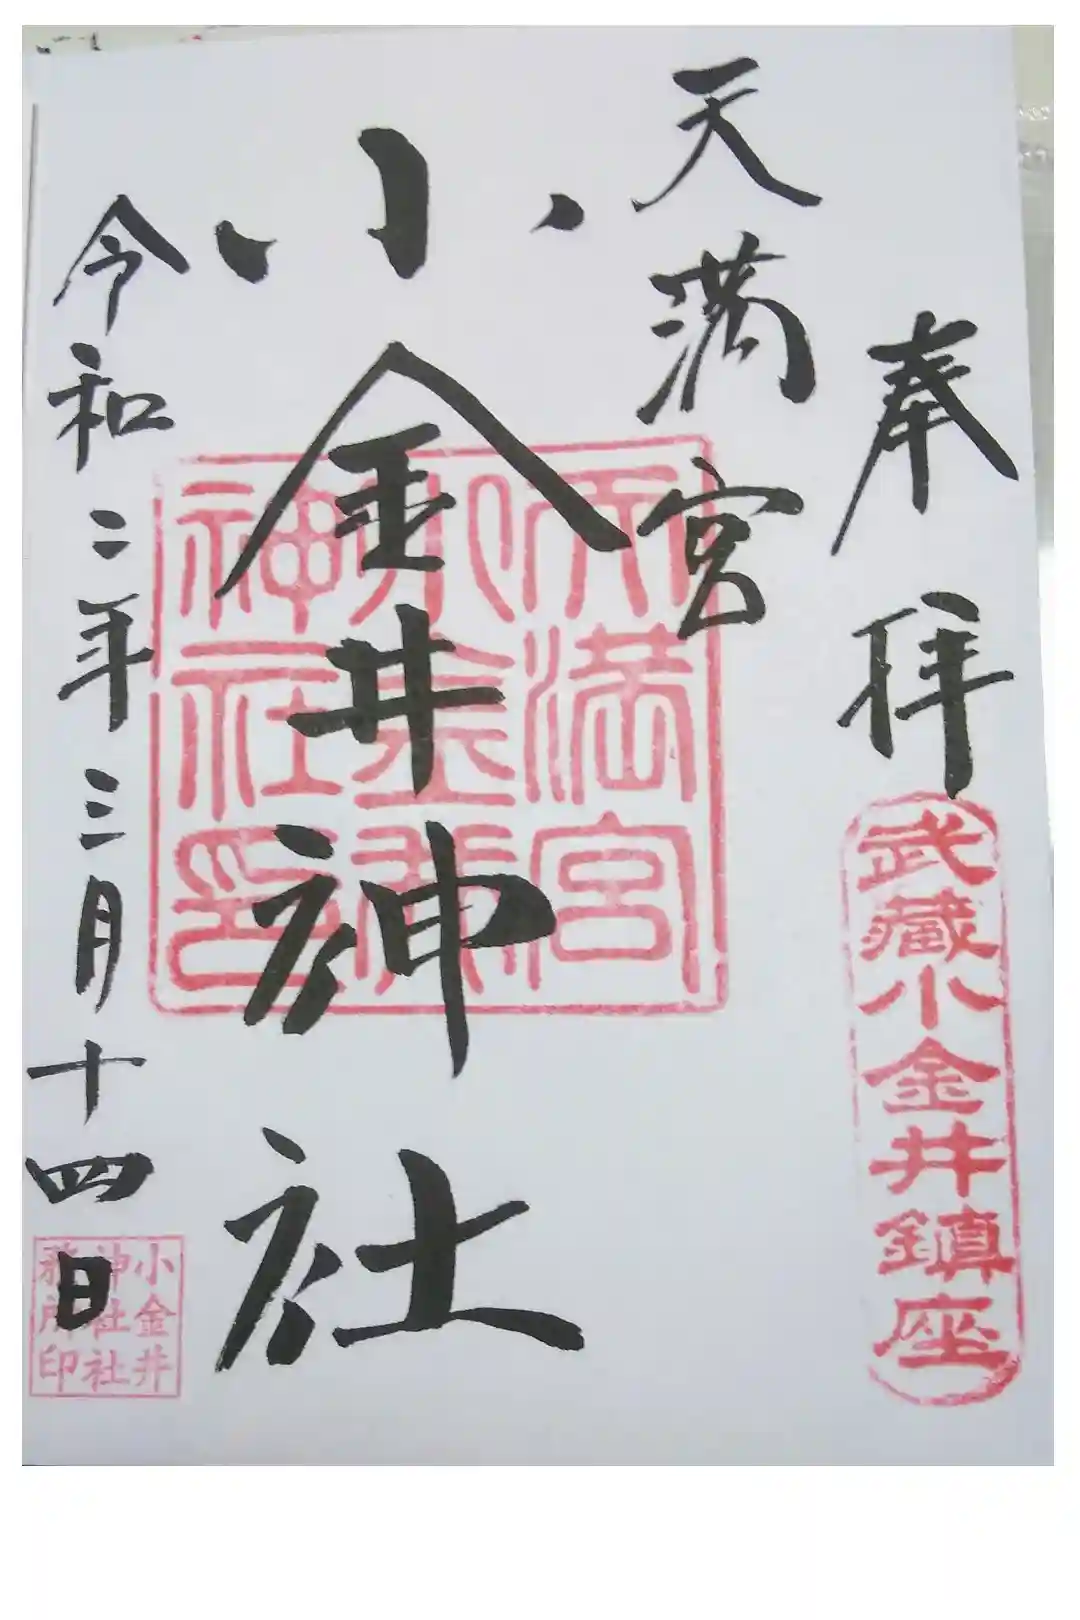 奉拝
武藏小金井鎮座
天満宮
小金井神社
天満宮
小金井
神社印
令和二年三月十四日
小金井
神社社
務所印